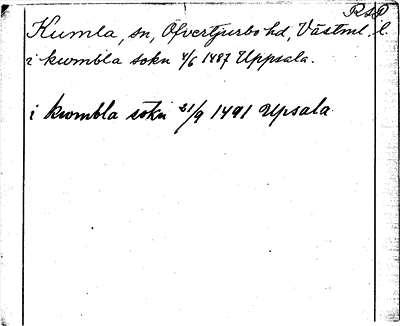 RSP
Kumla, sn, Öfvertjurbo hd, Västml. l.
i kwmbla sokn 4/6 1487 Uppsala.
i kwmbla sokn 21/9 1491 Upsala